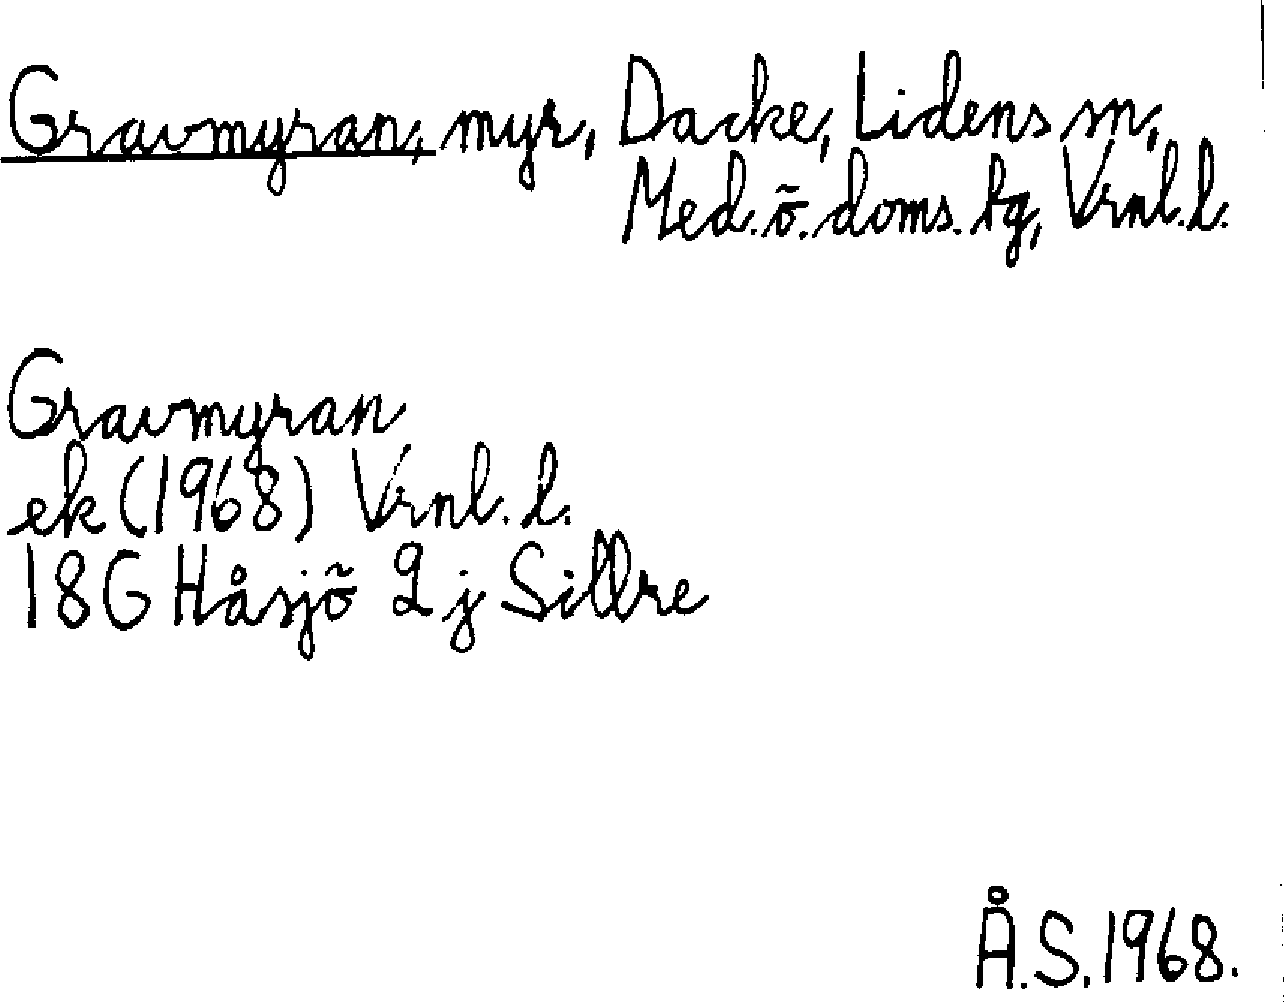 Gravmyran, myr, Dacke, Lidens sn,
Med. ö. doms. tg, Vrnl. l.
Gravmyran
ek (1968) Vrnl. l.
18G Håsjö 2 j Sillre
Å.S. 1968.